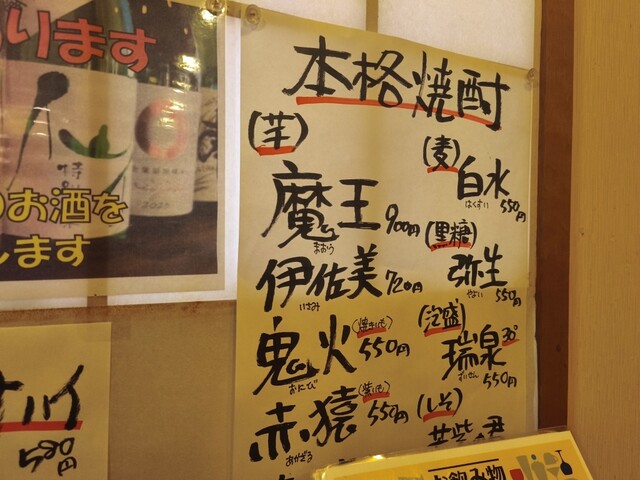 ります
仙
のお酒を
します
580円
本格焼酎
(芋)
魔王 900円
まおう
伊佐美 720円
いさみ
鬼火 (焼きいも) 550円
おにび
赤猿 (紫いも) 550円
あかざる
(麦)
白水 550円
はくすい
(黒糖)
弥生 550円
やよい
(泡盛)
瑞泉 30° 550円
ずいせん
(しそ)
お飲み物